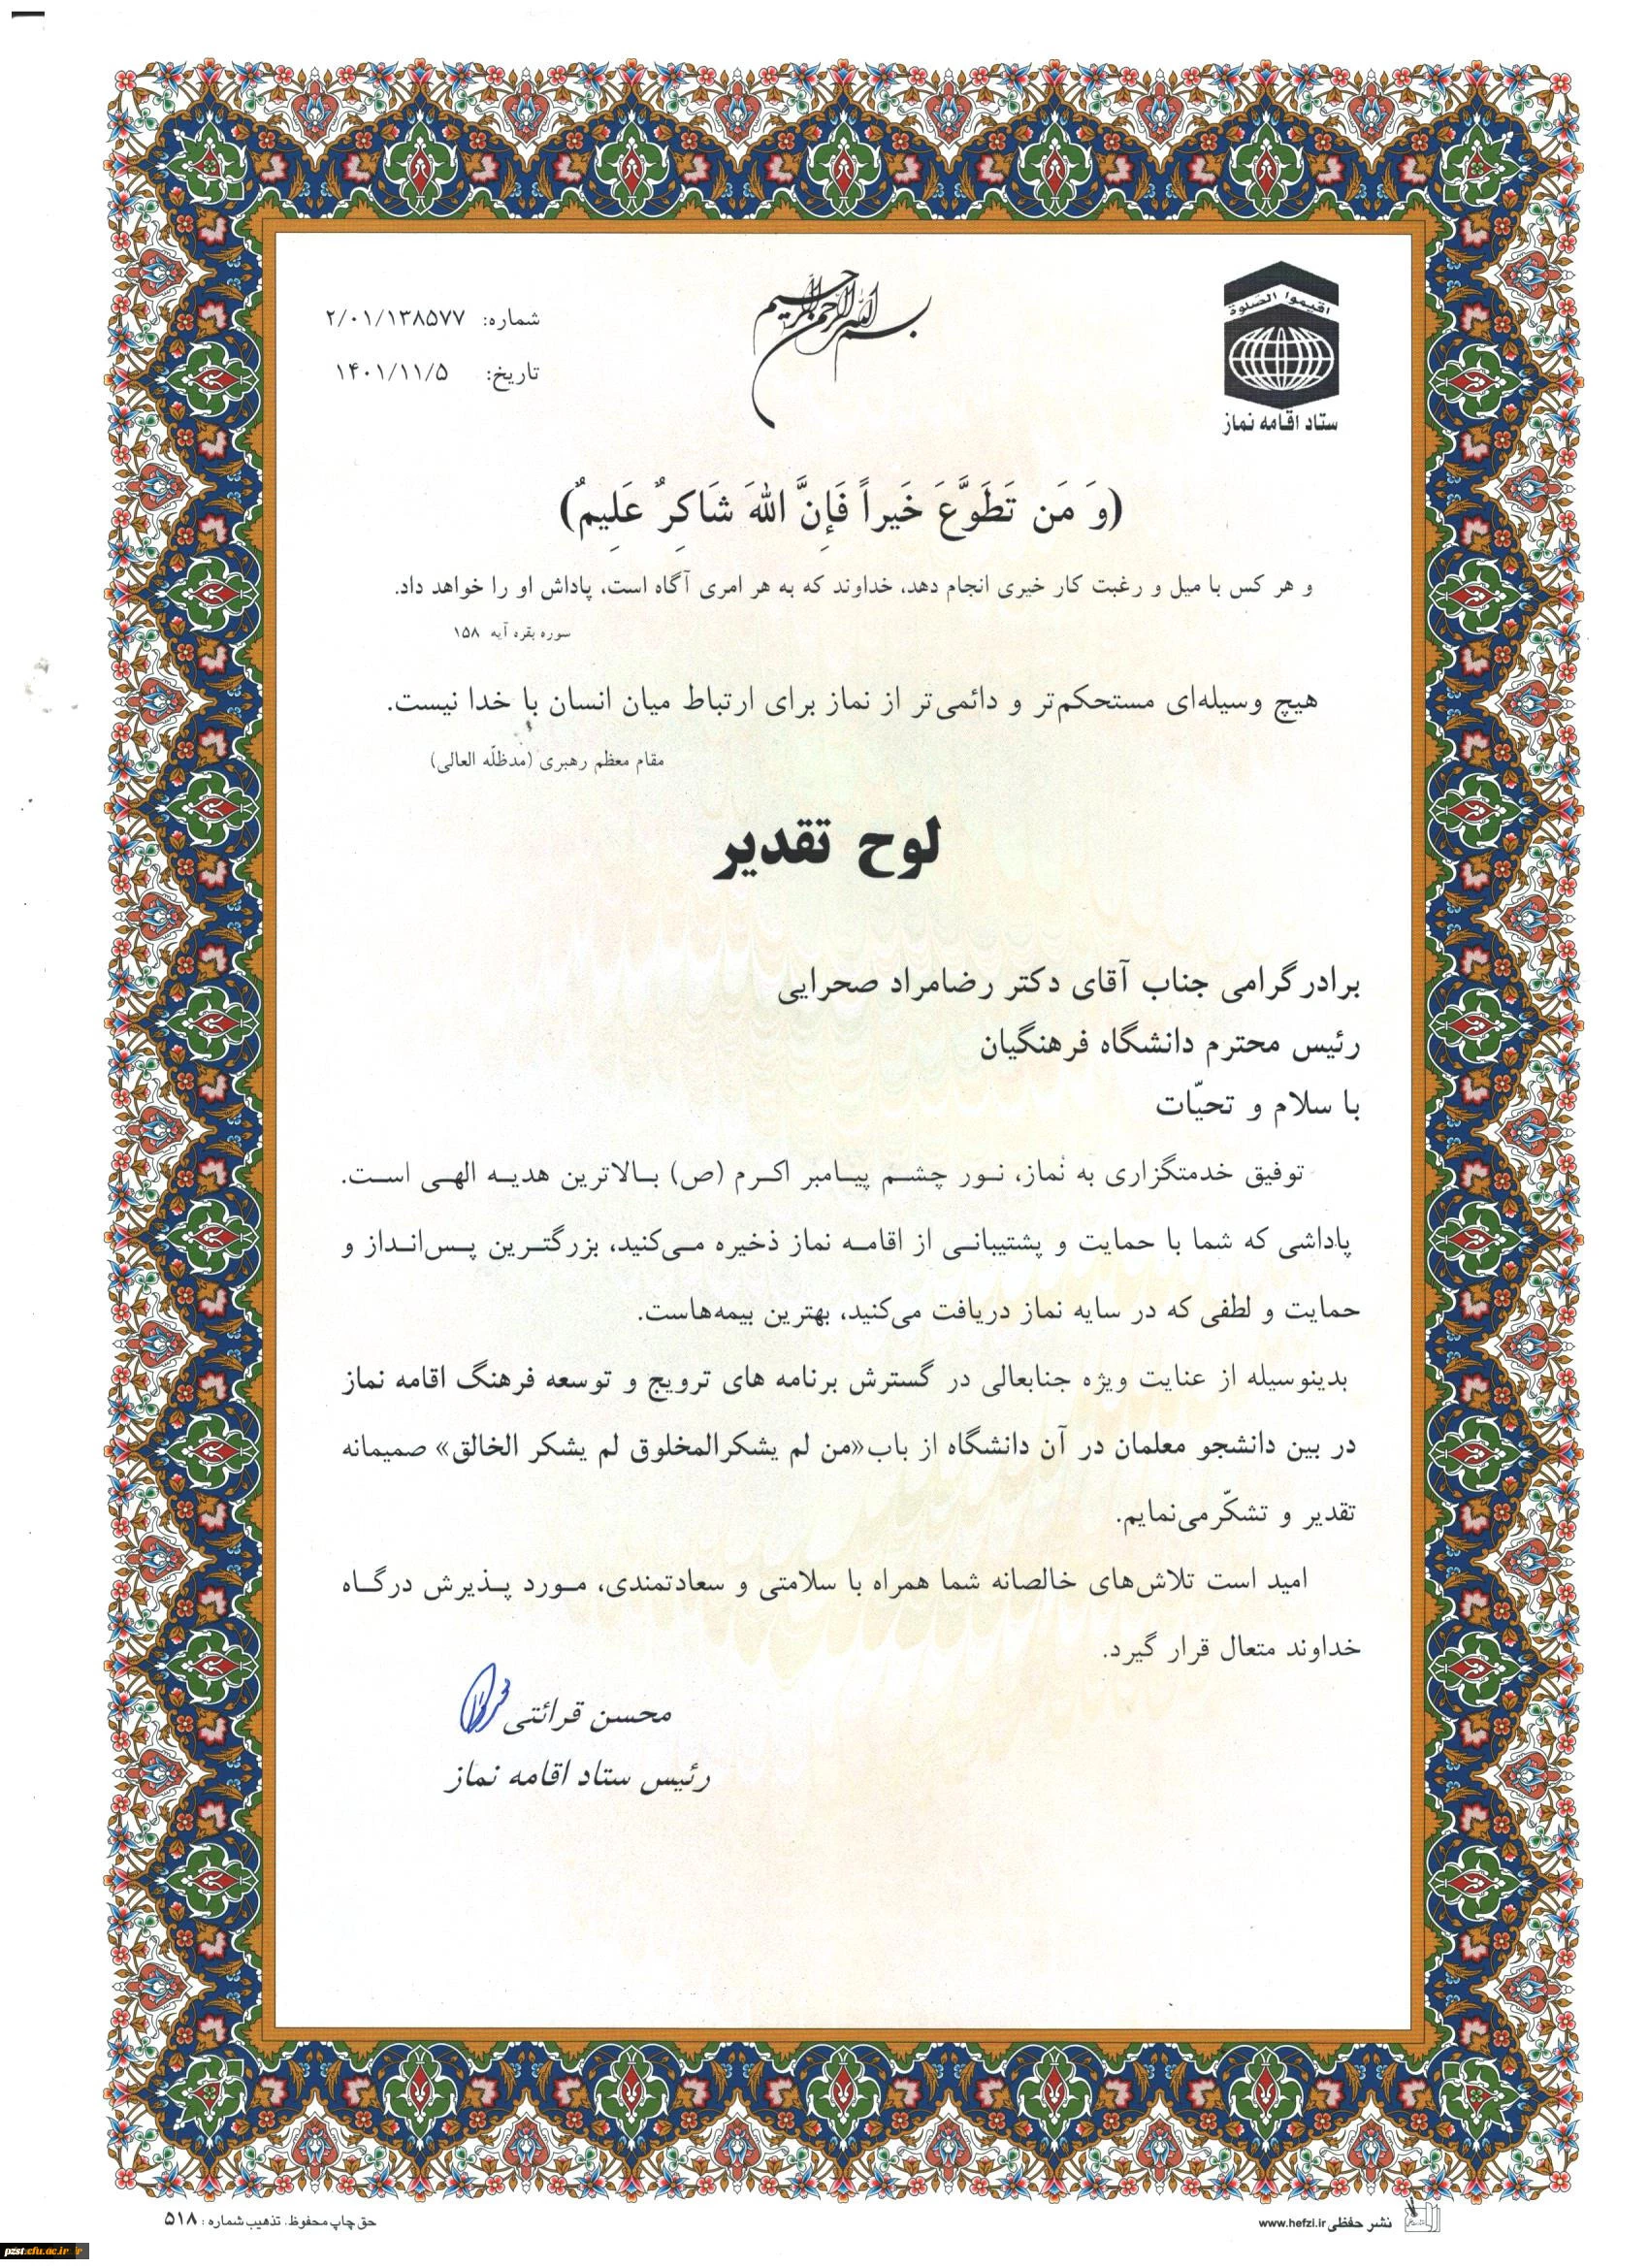 بسم الله الرحمن الرحیم
اقیموا الصلوة
ستاد اقامه نماز
شماره: ۲/۰۱/۱۳۸۵۷۷
تاریخ: ۱۴۰۱/۱۱/۵
(وَ مَن تَطَوَّعَ خَیراً فَإِنَّ اللهَ شَاکِرٌ عَلِیمٌ)
و هر کس با میل و رغبت کار خیری انجام دهد، خداوند که به هر امری آگاه است، پاداش او را خواهد داد.
سوره بقره آیه ۱۵۸
هیچ وسیله‌ای مستحکم‌تر و دائمی‌تر از نماز برای ارتباط میان انسان با خدا نیست.
مقام معظم رهبری (مدظلّه العالی)
لوح تقدیر
برادر گرامی جناب آقای دکتر رضامراد صحرایی
رئیس محترم دانشگاه فرهنگیان
با سلام و تحیّات
توفیق خدمتگزاری به نماز، نور چشم پیامبر اکرم (ص) بالاترین هدیه الهی است.
پاداشی که شما با حمایت و پشتیبانی از اقامه نماز ذخیره می‌کنید، بزرگترین پس‌انداز و
حمایت و لطفی که در سایه نماز دریافت می‌کنید، بهترین بیمه‌هاست.
بدینوسیله از عنایت ویژه جنابعالی در گسترش برنامه های ترویج و توسعه فرهنگ اقامه نماز
در بین دانشجو معلمان در آن دانشگاه از باب«من لم یشکرالمخلوق لم یشکر الخالق» صمیمانه
تقدیر و تشکّرمی‌نمایم.
امید است تلاش‌های خالصانه شما همراه با سلامتی و سعادتمندی، مورد پذیرش درگاه
خداوند متعال قرار گیرد.
محسن قرائتی
رئیس ستاد اقامه نماز
نشر حفظی www.hefzi.ir
حق چاپ محفوظ. تذهیب شماره: ۵۱۸